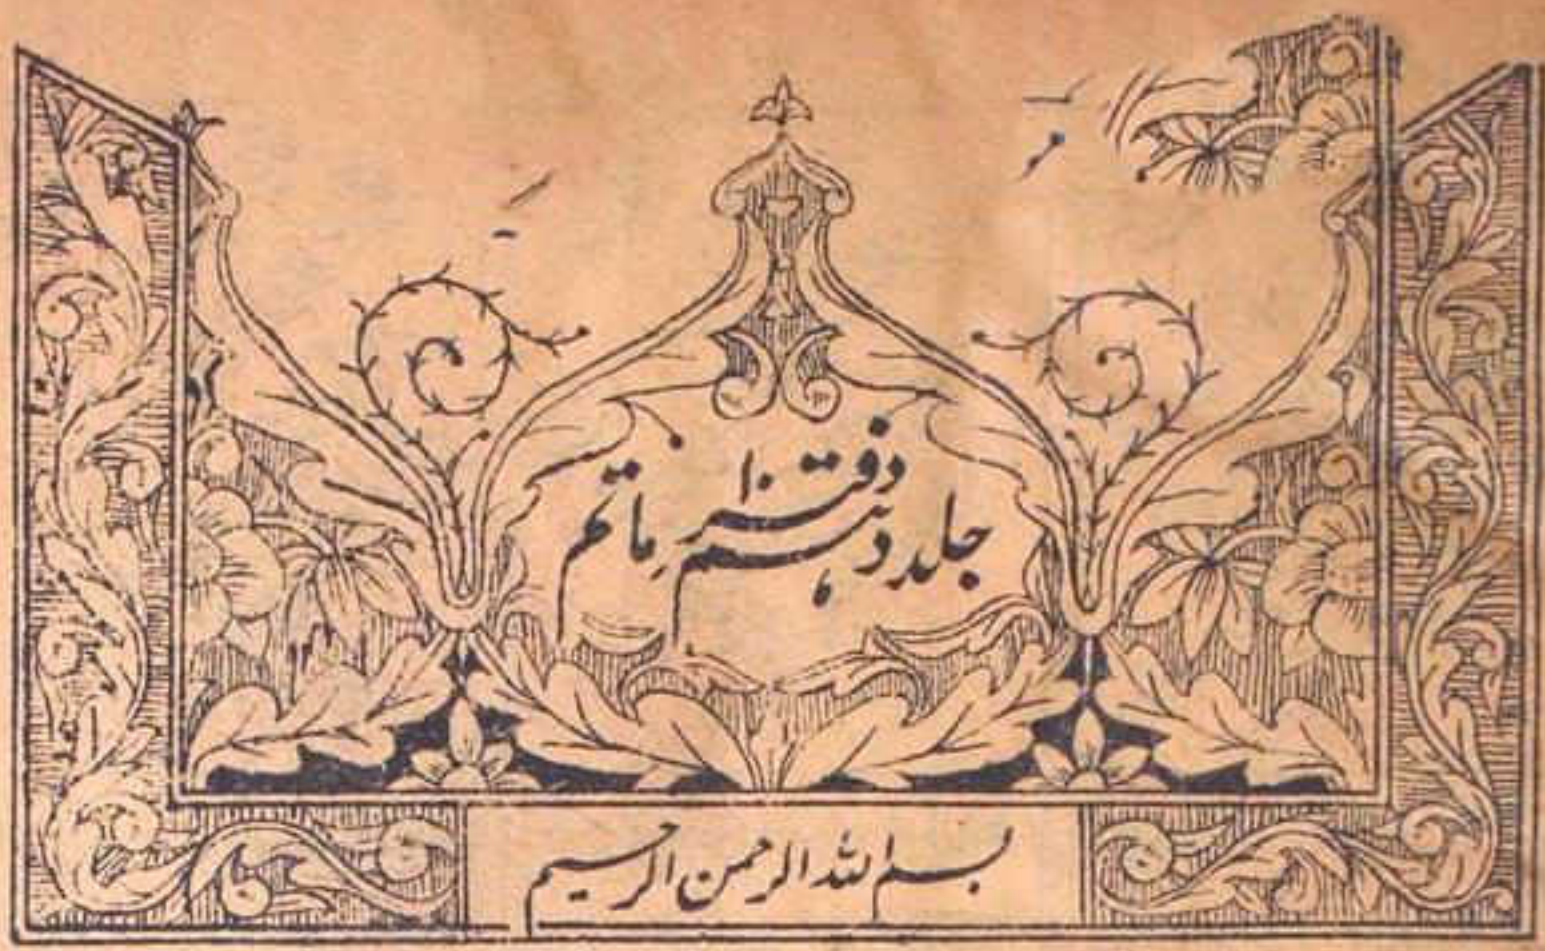 جلد دہم دفتر ماتم
۱۰
بسم اللہ الرحمن الرحیم